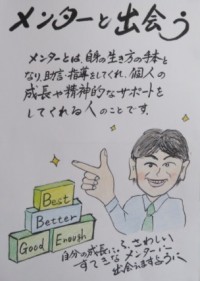 メンターと出会う
メンターとは、自身の生き方の手本と
なり、助言・指導をしてくれ、個人の
成長や精神的なサポートを
してくれる人のことです。
Best
Better
Good
Enough
自分の成長にふさわしい
すてきなメンターに
出会えますように